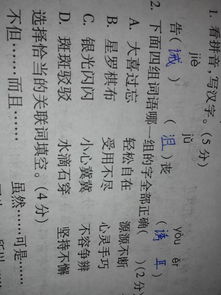 1. 看拼音,写汉字。(5分)
jiè jǔ yòu ěr
告(诫) (沮)丧 (诱耳)
2. 下面四组词语哪一组的字全部正确( )(2分)
A. 大喜过忘 轻松自在 源源不断
B. 星罗棋布 受用不尽 心灵手巧
C. 银光闪闪 小心冀冀 不容争辩
D. 斑斑驳驳 水滴石穿 坚持不懈
选择恰当的关联词填空。(4分)
不但……而且…… 虽然……可是……